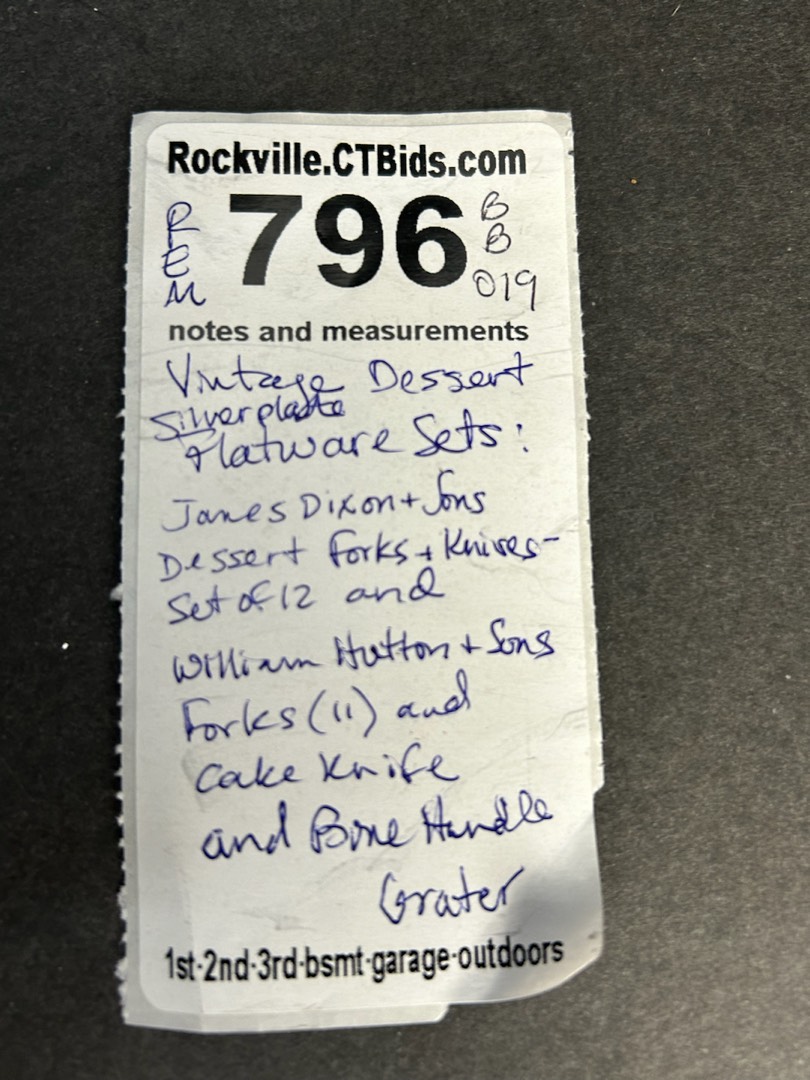 Rockville.CTBids.com
REM 796 BB 019
notes and measurements
Vintage Dessert
Silverplate
Flatware Sets:
James Dixon + Sons
Dessert Forks + Knives -
Set of 12 and
William Hutton + Sons
Forks (11) and
Cake Knife
and Bone Handle
Grater
1st-2nd-3rd-bsmt-garage-outdoors